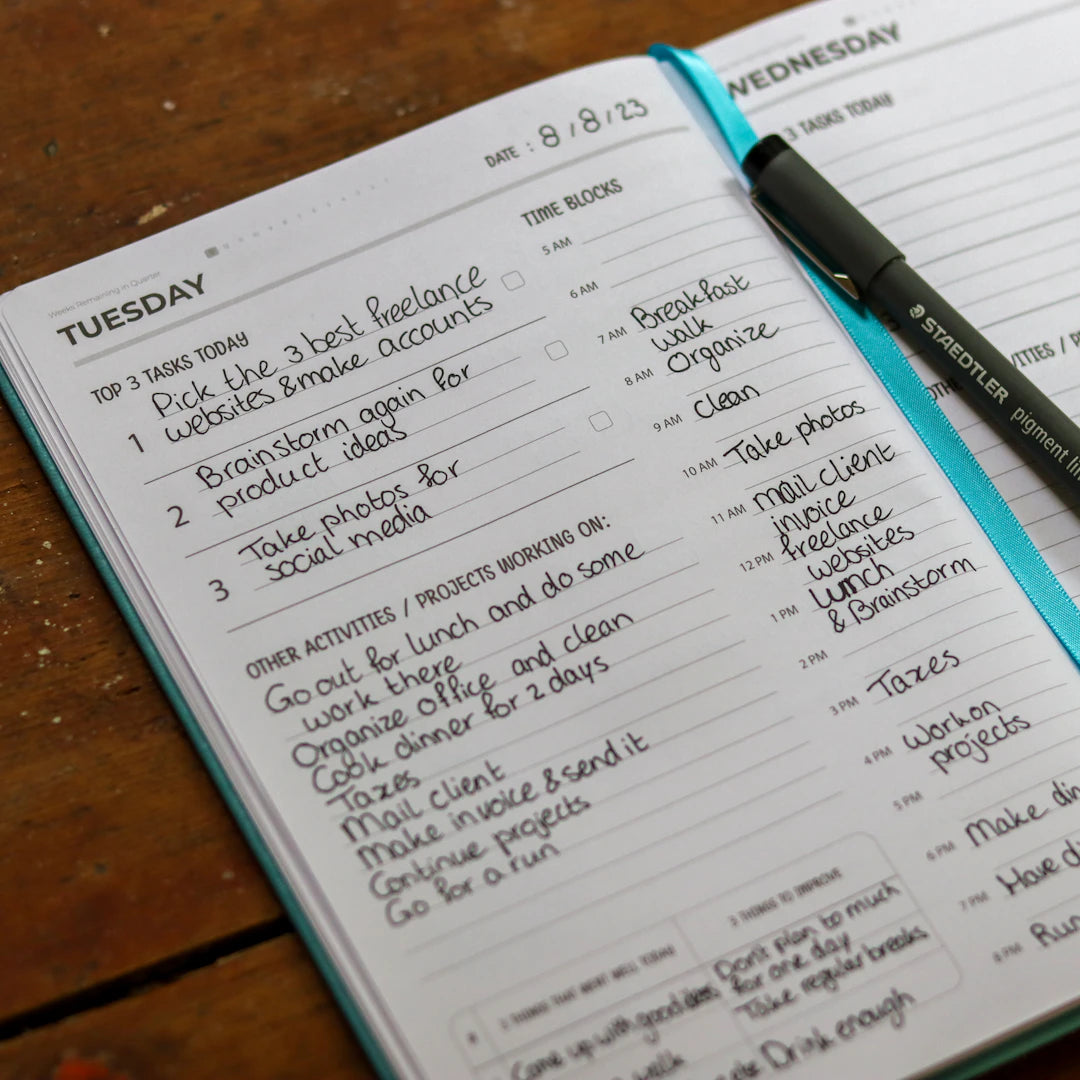 DATE : 8 / 8 / 23
Weeks Remaining in Quarter
TUESDAY
TOP 3 TASKS TODAY
1
Pick the 3 best freelance
websites & make accounts
2
Brainstorm again for
product ideas
3
Take photos for
social media
OTHER ACTIVITIES / PROJECTS WORKING ON:
Go out for lunch and do some
work there
Organize office and clean
Cook dinner for 2 days
Taxes
Mail client
Make invoice & send it
Continue projects
Go for a run
TIME BLOCKS
5 AM
6 AM
7 AM Breakfast
walk
8 AM Organize
9 AM clean
10 AM Take photos
11 AM mail client
invoice
12 PM freelance
websites
lunch
1 PM & Brainstorm
2 PM
3 PM Taxes
4 PM Work on
projects
5 PM
6 PM Make
7 PM Have
8 PM
3 THINGS THAT WENT WELL TODAY
Came up with good
walk
3 THINGS TO IMPROVE
Don't plan to much
for one day
Take regular breaks
Drink enough
WEDNESDAY
3 TASKS TODAY
STAEDTLER
pigment